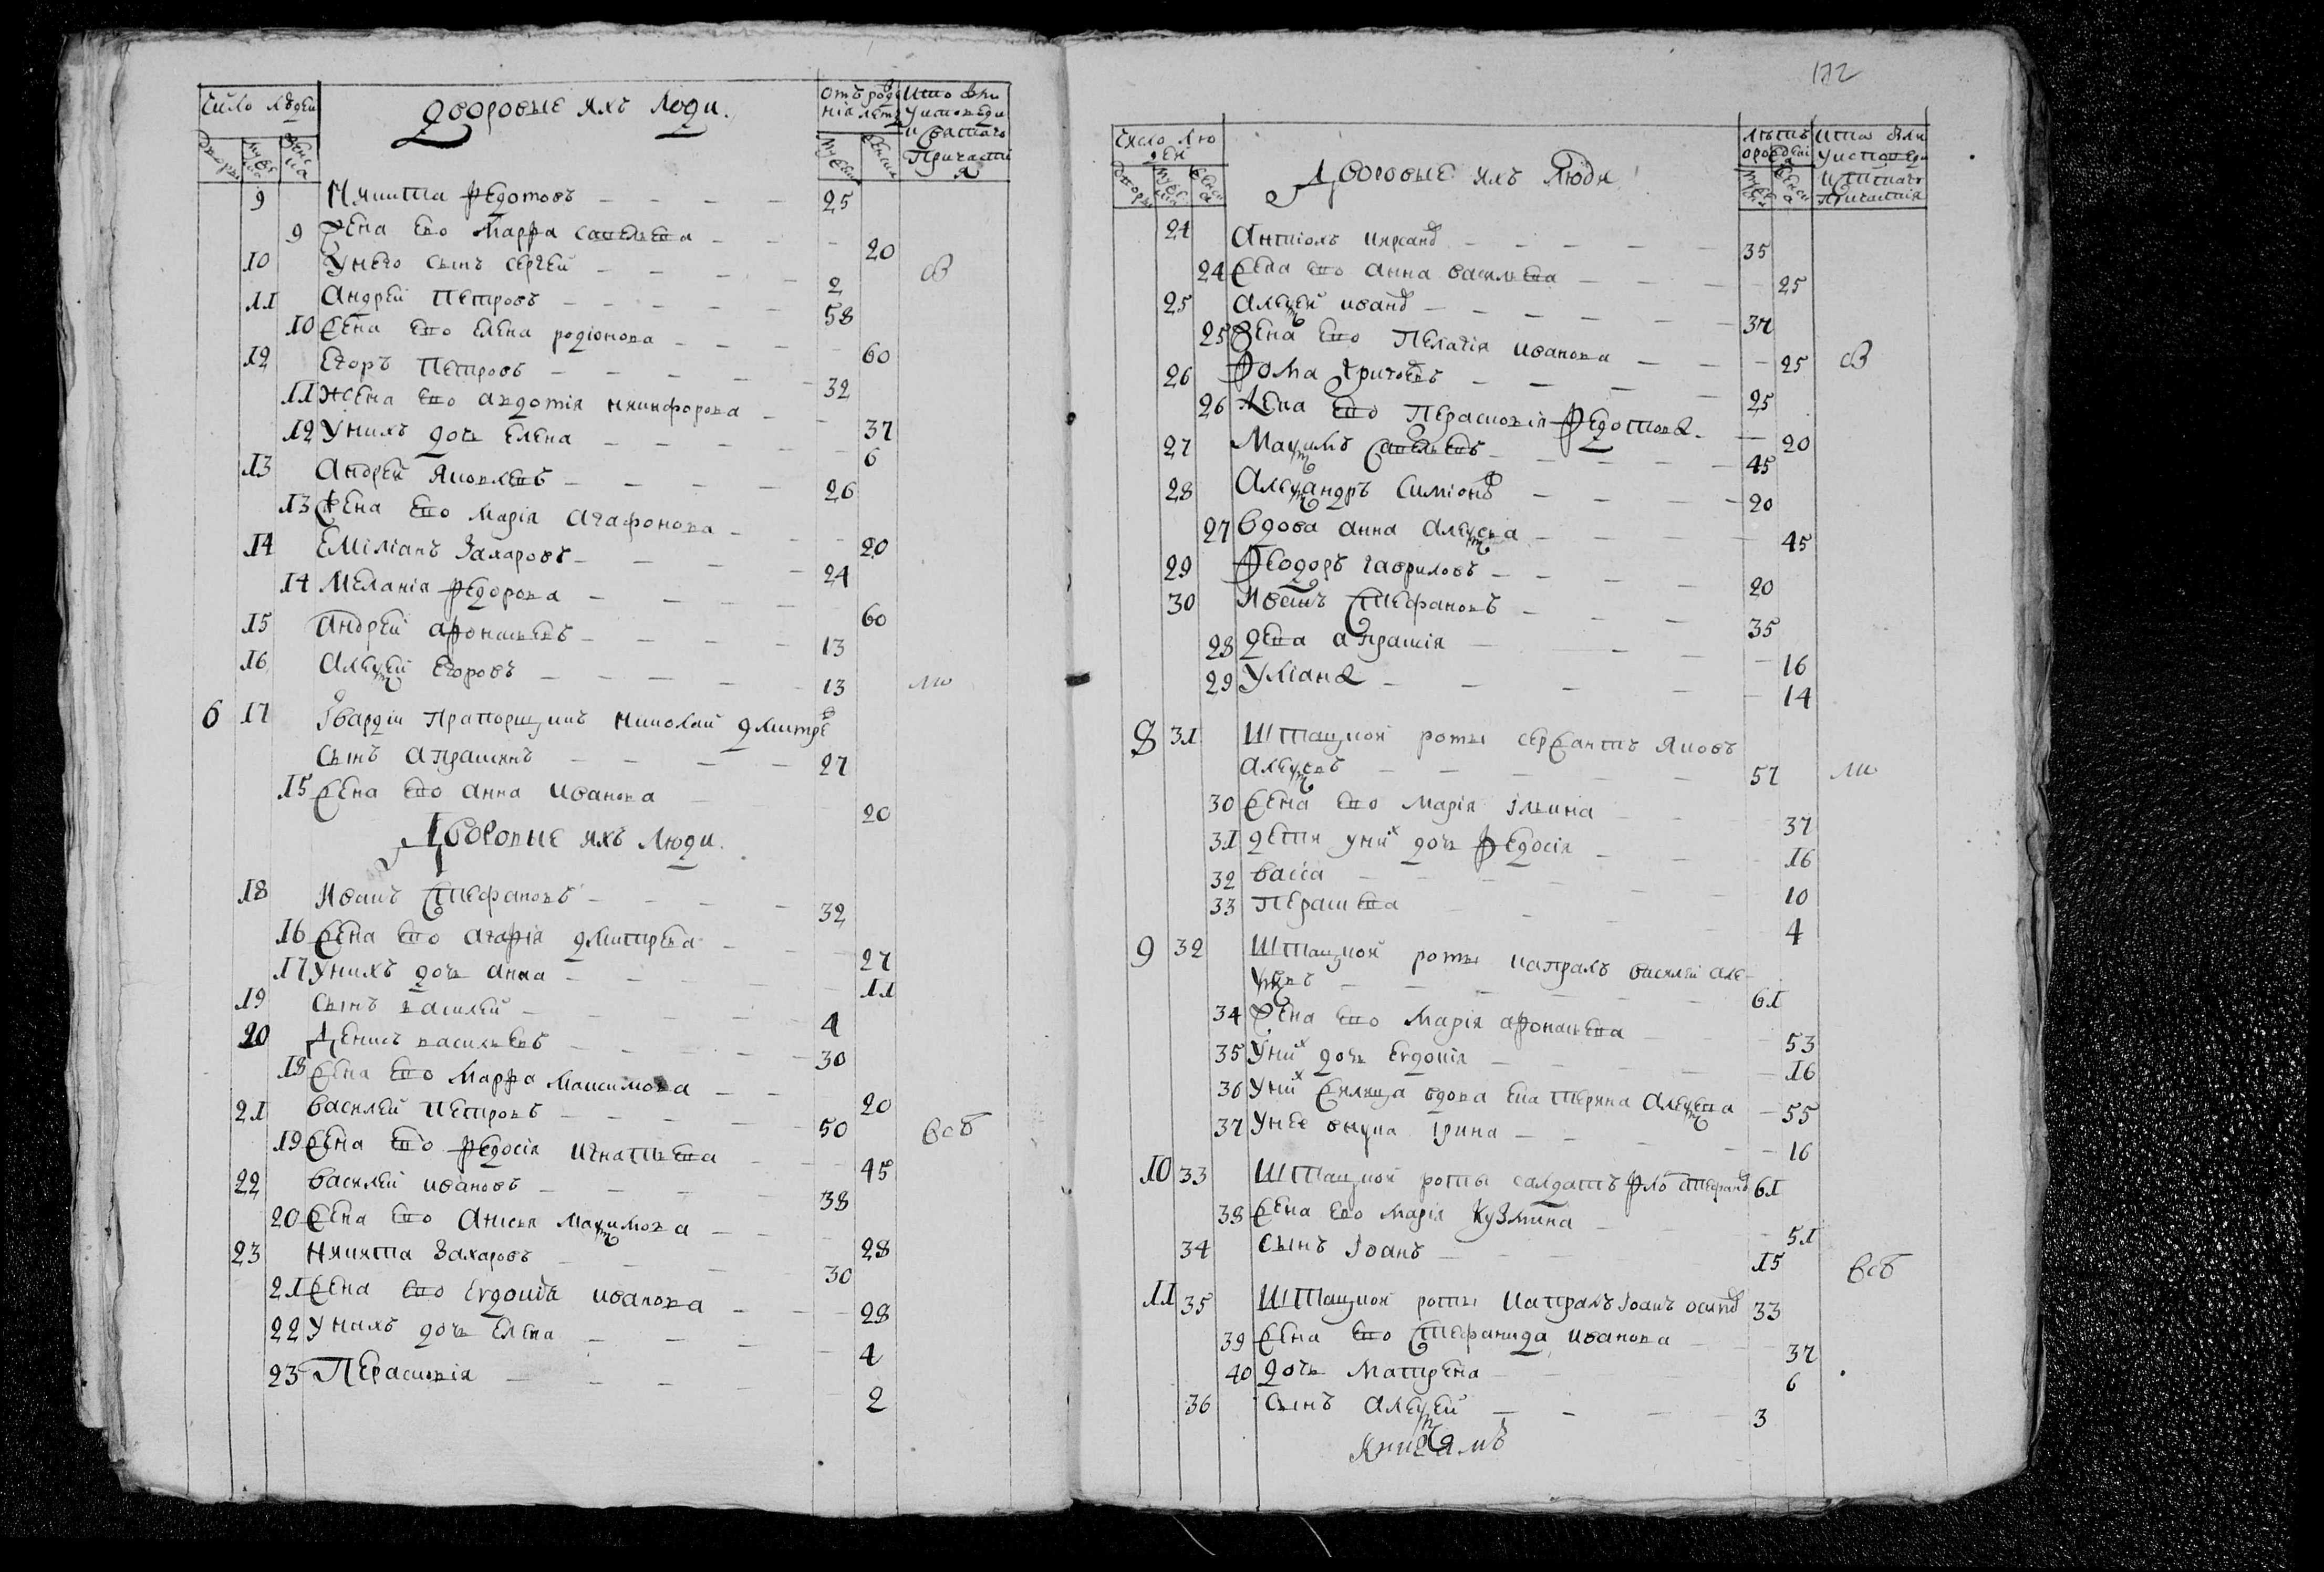 Число людей
Дворовые ихъ люди.
Отъ рождения летъ
Кто были у исповеди и святаго причастия
Дворы
Мужеска
Женска
Мужеска
Женска
9 Никита Федотовъ 25
9 Жена ево Марфа Савельева 20
10 У него сынъ Сергей 2
11 Андрей Петровъ 58
10 Жена ево Елена Родіонова 60
12 Егоръ Петровъ 32
11 Жена ево Авдотія Никифорова 37
12 У нихъ дочь Елена 6
13 Андрей Яковлевъ 26
13 Жена ево Марія Агафонова 20
14 Еміліанъ Захаровъ 24
14 Меланія Федорова 60
15 Андрей Афонасьевъ 13
16 Алеѯей Егоровъ 13
6 17 Гвардіи прапорщикъ Николай Дмитрев
сынъ Апраксинъ 27
15 Жена ево Анна Иванова 20
Дворовые ихъ люди.
18 Иванъ Стефановъ 32
16 Жена ево Агафія Дмитрева 27
17 У нихъ дочь Анна 11
19 Сынъ Василей 4
20 Денисъ Васильевъ 30
18 Жена ево Марфа Максимова 20
21 Василей Петровъ 50
19 Жена ево Федосія Игнатьева 45
22 Василей Ивановъ 38
20 Жена ево Анисья Маѯимова 28
23 Никита Захаровъ 30
21 Жена ево Евдокиа Иванова 28
22 У нихъ дочь Елена 4
23 Парасковія 2
172
Число людей
Дворовые ихъ люди
Летъ от рождения
Кто были у исповеди и святаго причастія
Дворы
Мужеска
Женска
24 35
24 Жена ево Анна Васильева 25
25 Алеѯей Иванов 37
25 Жена ево Пелагія Иванова 25
26 Фома Григоревъ 25
26 Жена ево Перасковія Федотова 20
27 Маѯимъ Савельевъ 45
28 Алеѯандръ Симіонов 20
27 Вдова Анна Алеѯева 45
29 Феодоръ Гавриловъ 20
30 Иванъ Стефановъ 35
28 Девка Апраксія 16
29 Уліана 14
8 31 Штацкой роты сержантъ Яковъ
Алеѯевъ 57
30 Жена ево Марія Ільина 37
31 Дети у них дочь Федосія 16
32 Васса 10
33 Пераскева 4
9 32 Штацкой роты капралъ Василей Але-
ѯевъ 61
34 Жена ево Марія Афонасьева 53
35 У них дочь Евдокія 16
36 У них жилица вдова Екатерина Алеѯева 55
37 У нее внука Ірина 16
10 33 Штацкой роты салдатъ Фло Стефанов 61
38 Жена ево Марія Кузмина 51
34 Сынъ Іоанъ 15
11 35 Штацкой роты капралъ Іоанъ Осипов 33
39 Жена ево Стефанида Иванова 37
40 Дочь Матрена 6
36 Сынъ Алеѯей 3